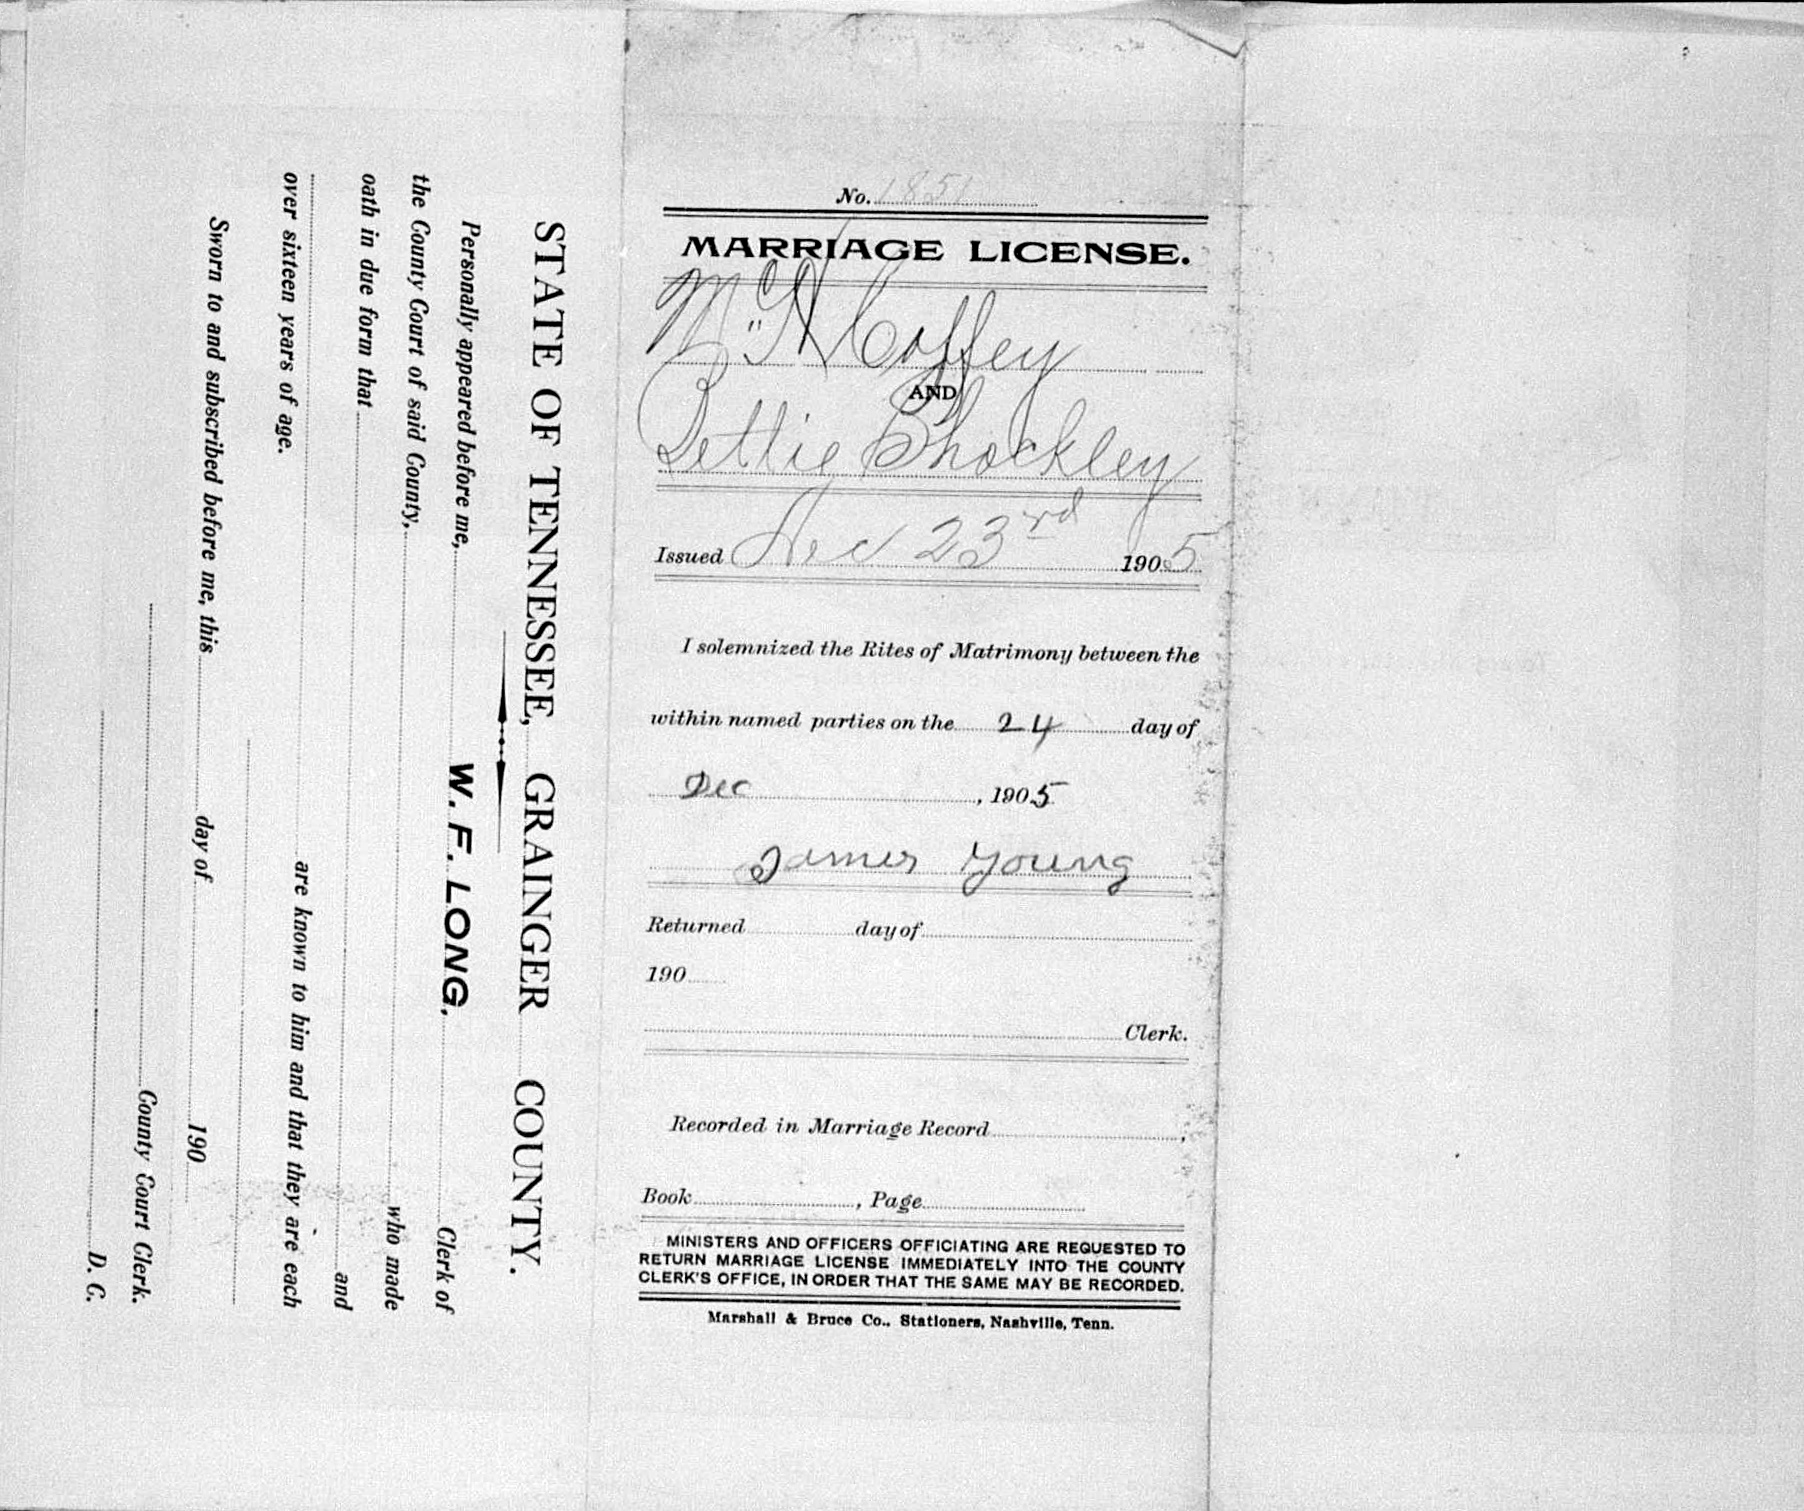 STATE OF TENNESSEE, GRAINGER COUNTY.
Personally appeared before me, W. F. LONG, Clerk of
the County Court of said County, who made
oath in due form that and
are known to him and that they are each
over sixteen years of age.
Sworn to and subscribed before me, this day of 190
County Court Clerk.
D. C.
No. 1851
MARRIAGE LICENSE.
Coffey
AND
Bettie Shockley
Issued Dec 23rd 1905
I solemnized the Rites of Matrimony between the
within named parties on the 24 day of
Dec , 1905
James Young
Returned day of
190
Clerk.
Recorded in Marriage Record ,
Book , Page
MINISTERS AND OFFICERS OFFICIATING ARE REQUESTED TO
RETURN MARRIAGE LICENSE IMMEDIATELY INTO THE COUNTY
CLERK'S OFFICE, IN ORDER THAT THE SAME MAY BE RECORDED.
Marshall & Bruce Co., Stationers, Nashville, Tenn.